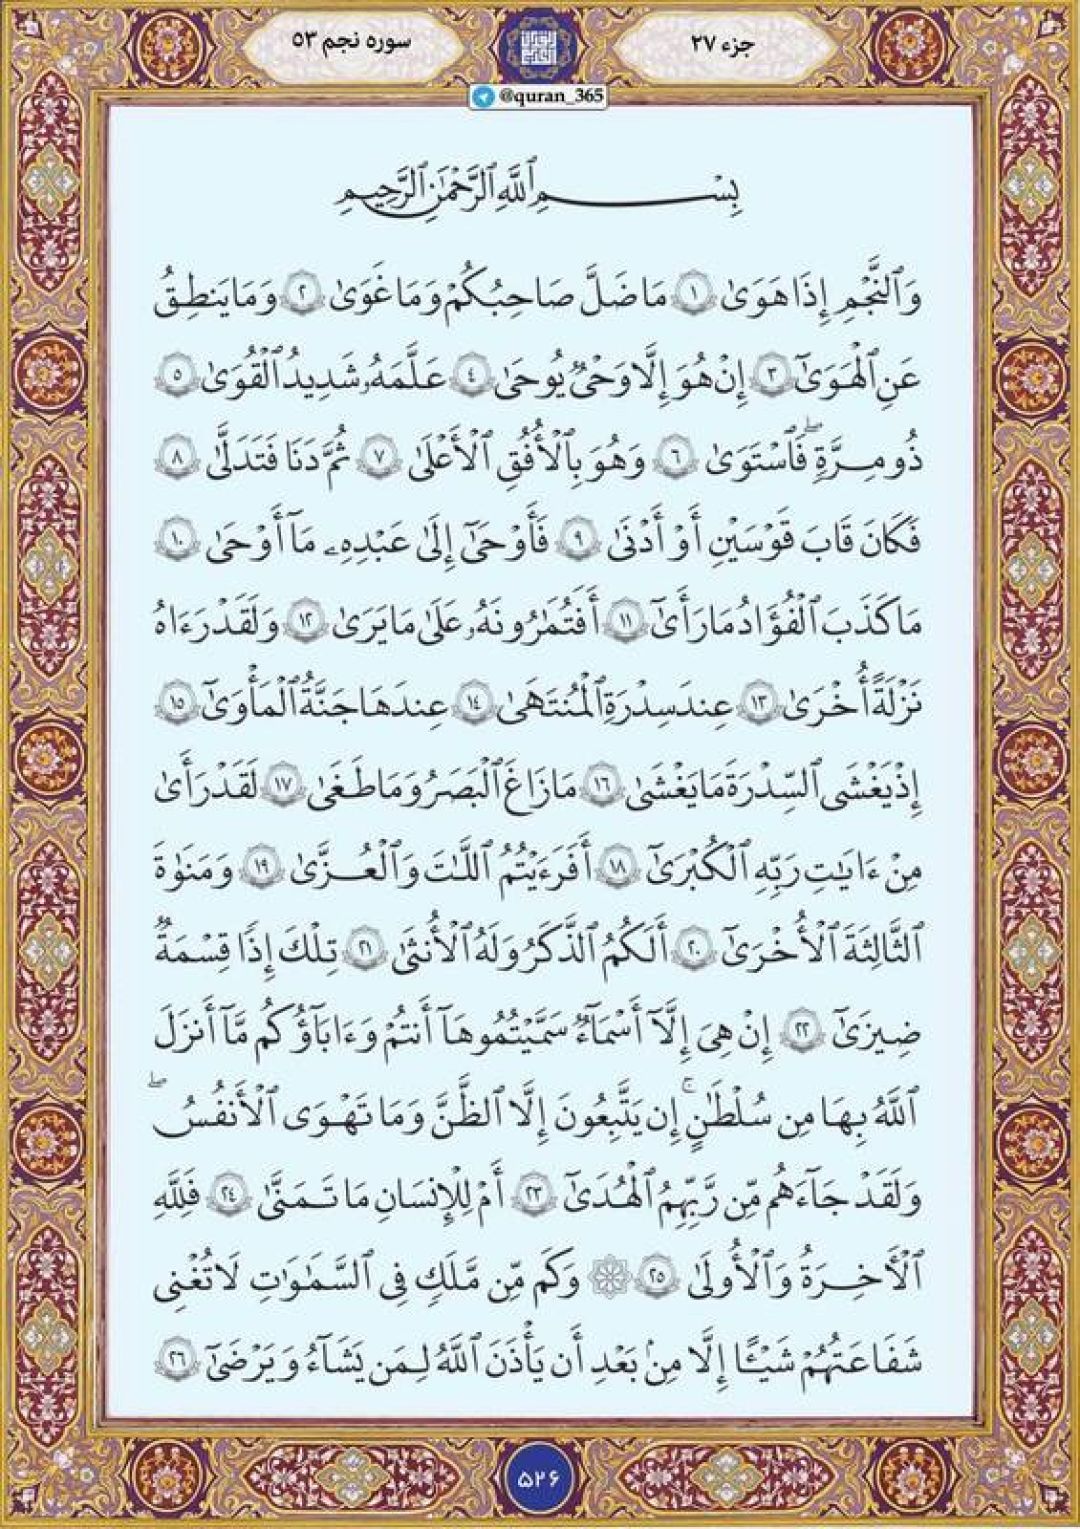 جزء ۲۷
سوره نجم ۵۳
@quran_365
بِسْمِ ٱللَّهِ ٱلرَّحْمَٰنِ ٱلرَّحِيمِ
وَٱلنَّجْمِ إِذَا هَوَىٰ ١ مَا ضَلَّ صَاحِبُكُمْ وَمَا غَوَىٰ ٢ وَمَا يَنطِقُ
عَنِ ٱلْهَوَىٰٓ ٣ إِنْ هُوَ إِلَّا وَحْىٌ يُوحَىٰ ٤ عَلَّمَهُۥ شَدِيدُ ٱلْقُوَىٰ ٥
ذُو مِرَّةٍ فَٱسْتَوَىٰ ٦ وَهُوَ بِٱلْأُفُقِ ٱلْأَعْلَىٰ ٧ ثُمَّ دَنَا فَتَدَلَّىٰ ٨
فَكَانَ قَابَ قَوْسَيْنِ أَوْ أَدْنَىٰ ٩ فَأَوْحَىٰٓ إِلَىٰ عَبْدِهِۦ مَآ أَوْحَىٰ ١٠
مَا كَذَبَ ٱلْفُؤَادُ مَا رَأَىٰٓ ١١ أَفَتُمَٰرُونَهُۥ عَلَىٰ مَا يَرَىٰ ١٢ وَلَقَدْ رَءَاهُ
نَزْلَةً أُخْرَىٰ ١٣ عِندَ سِدْرَةِ ٱلْمُنتَهَىٰ ١٤ عِندَهَا جَنَّةُ ٱلْمَأْوَىٰٓ ١٥
إِذْ يَغْشَى ٱلسِّدْرَةَ مَا يَغْشَىٰ ١٦ مَا زَاغَ ٱلْبَصَرُ وَمَا طَغَىٰ ١٧ لَقَدْ رَأَىٰ
مِنْ ءَايَٰتِ رَبِّهِ ٱلْكُبْرَىٰٓ ١٨ أَفَرَءَيْتُمُ ٱللَّٰتَ وَٱلْعُزَّىٰ ١٩ وَمَنَوٰةَ
ٱلثَّالِثَةَ ٱلْأُخْرَىٰٓ ٢٠ أَلَكُمُ ٱلذَّكَرُ وَلَهُ ٱلْأُنثَىٰ ٢١ تِلْكَ إِذًا قِسْمَةٌ
ضِيزَىٰٓ ٢٢ إِنْ هِىَ إِلَّآ أَسْمَآءٌ سَمَّيْتُمُوهَآ أَنتُمْ وَءَابَآؤُكُم مَّآ أَنزَلَ
ٱللَّهُ بِهَا مِن سُلْطَٰنٍ ۚ إِن يَتَّبِعُونَ إِلَّا ٱلظَّنَّ وَمَا تَهْوَى ٱلْأَنفُسُ ۖ
وَلَقَدْ جَآءَهُم مِّن رَّبِّهِمُ ٱلْهُدَىٰٓ ٢٣ أَمْ لِلْإِنسَٰنِ مَا تَمَنَّىٰ ٢٤ فَلِلَّهِ
ٱلْأَخِرَةُ وَٱلْأُولَىٰ ٢٥ ۞ وَكَم مِّن مَّلَكٍ فِى ٱلسَّمَٰوَٰتِ لَا تُغْنِى
شَفَاعَتُهُمْ شَيْـًٔا إِلَّا مِنۢ بَعْدِ أَن يَأْذَنَ ٱللَّهُ لِمَن يَشَآءُ وَيَرْضَىٰٓ ٢٦
۵۲۶